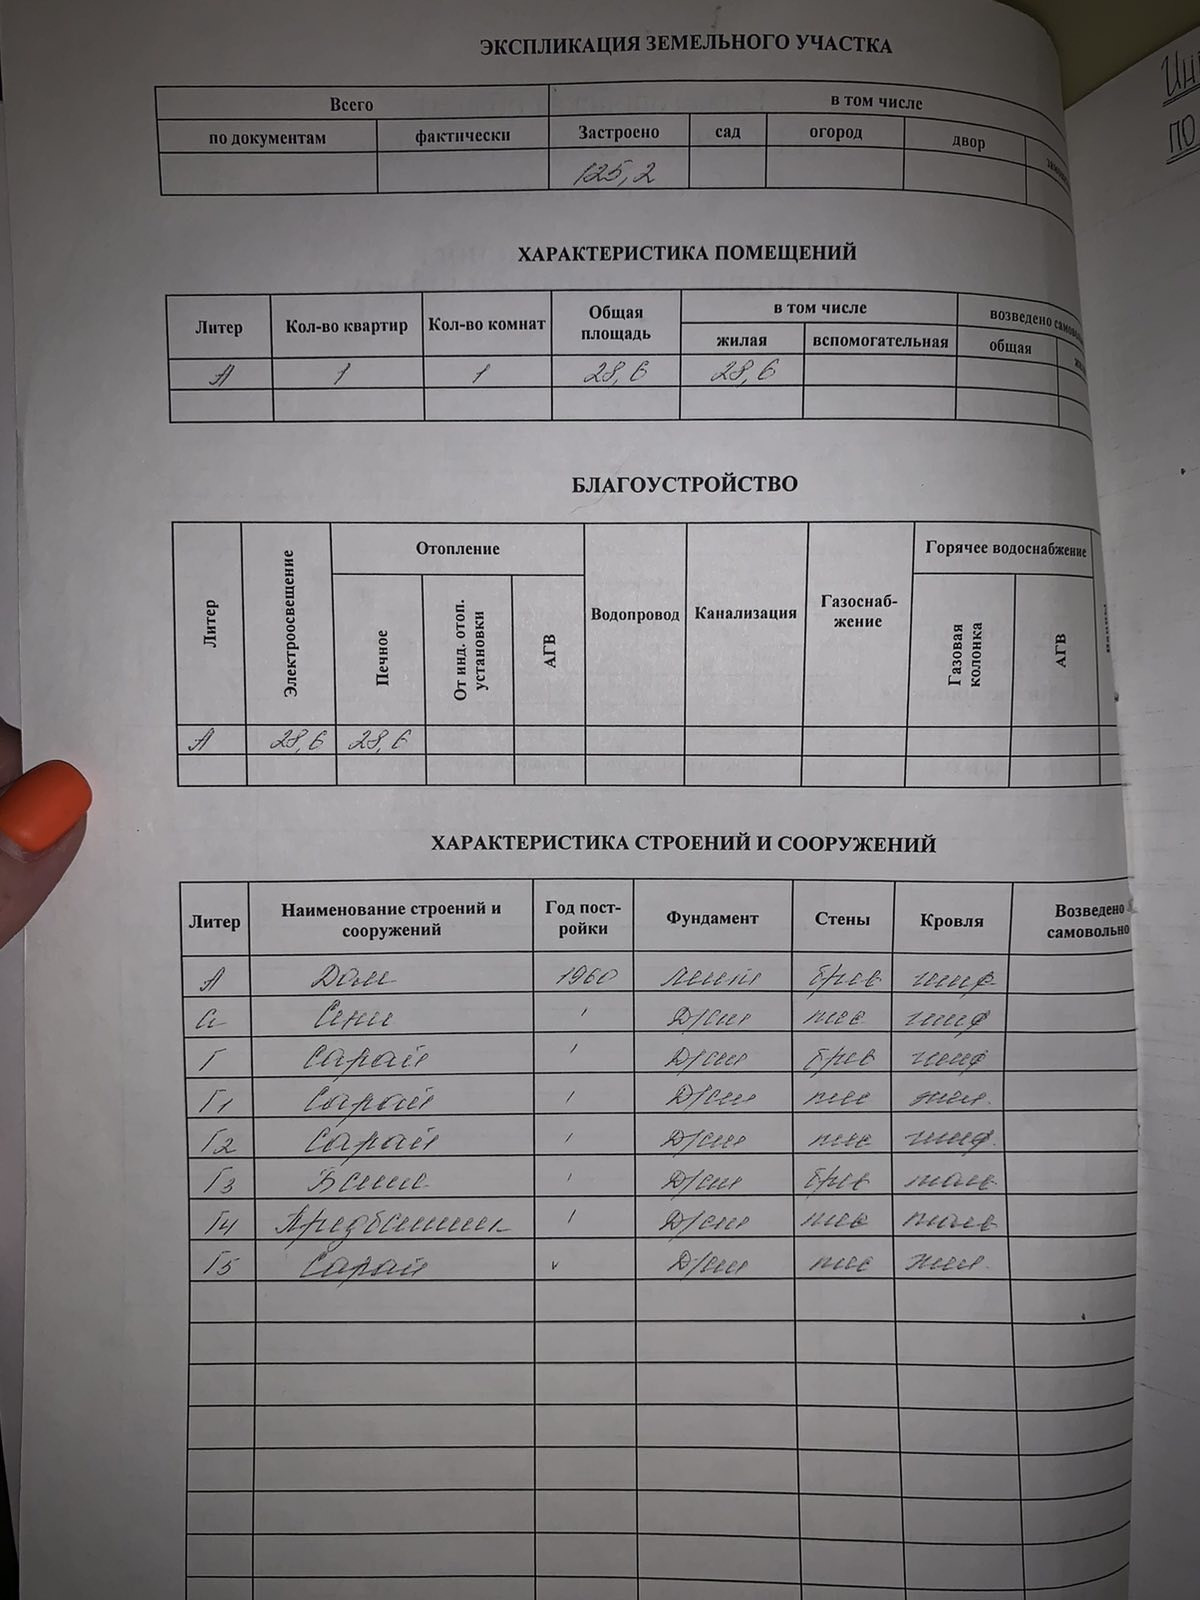 ЭКСПЛИКАЦИЯ ЗЕМЕЛЬНОГО УЧАСТКА
Всего в том числе
по документам фактически Застроено сад огород двор
125,2
ХАРАКТЕРИСТИКА ПОМЕЩЕНИЙ
Литер Кол-во квартир Кол-во комнат Общая площадь в том числе возведено
жилая вспомогательная общая
А 1 1 28,6 28,6
БЛАГОУСТРОЙСТВО
Литер Электроосвещение Отопление Водопровод Канализация Газоснаб-
жение Горячее водоснабжение
Печное От инд. отоп. установки АГВ Газовая колонка АГВ
А 28,6 28,6
ХАРАКТЕРИСТИКА СТРОЕНИЙ И СООРУЖЕНИЙ
Литер Наименование строений и сооружений Год пост-
ройки Фундамент Стены Кровля Возведено самовольно
А Дом 1960 брев шиф
а Сени ' тес шиф
Г Сарай ' брев шиф
Г1 Сарай ' тес жел.
Г2 Сарай ' тес шиф.
Г3 Баня ' брев толь
Г4 Предбанник ' тес толь
Г5 Сарай тес жел.
ПО